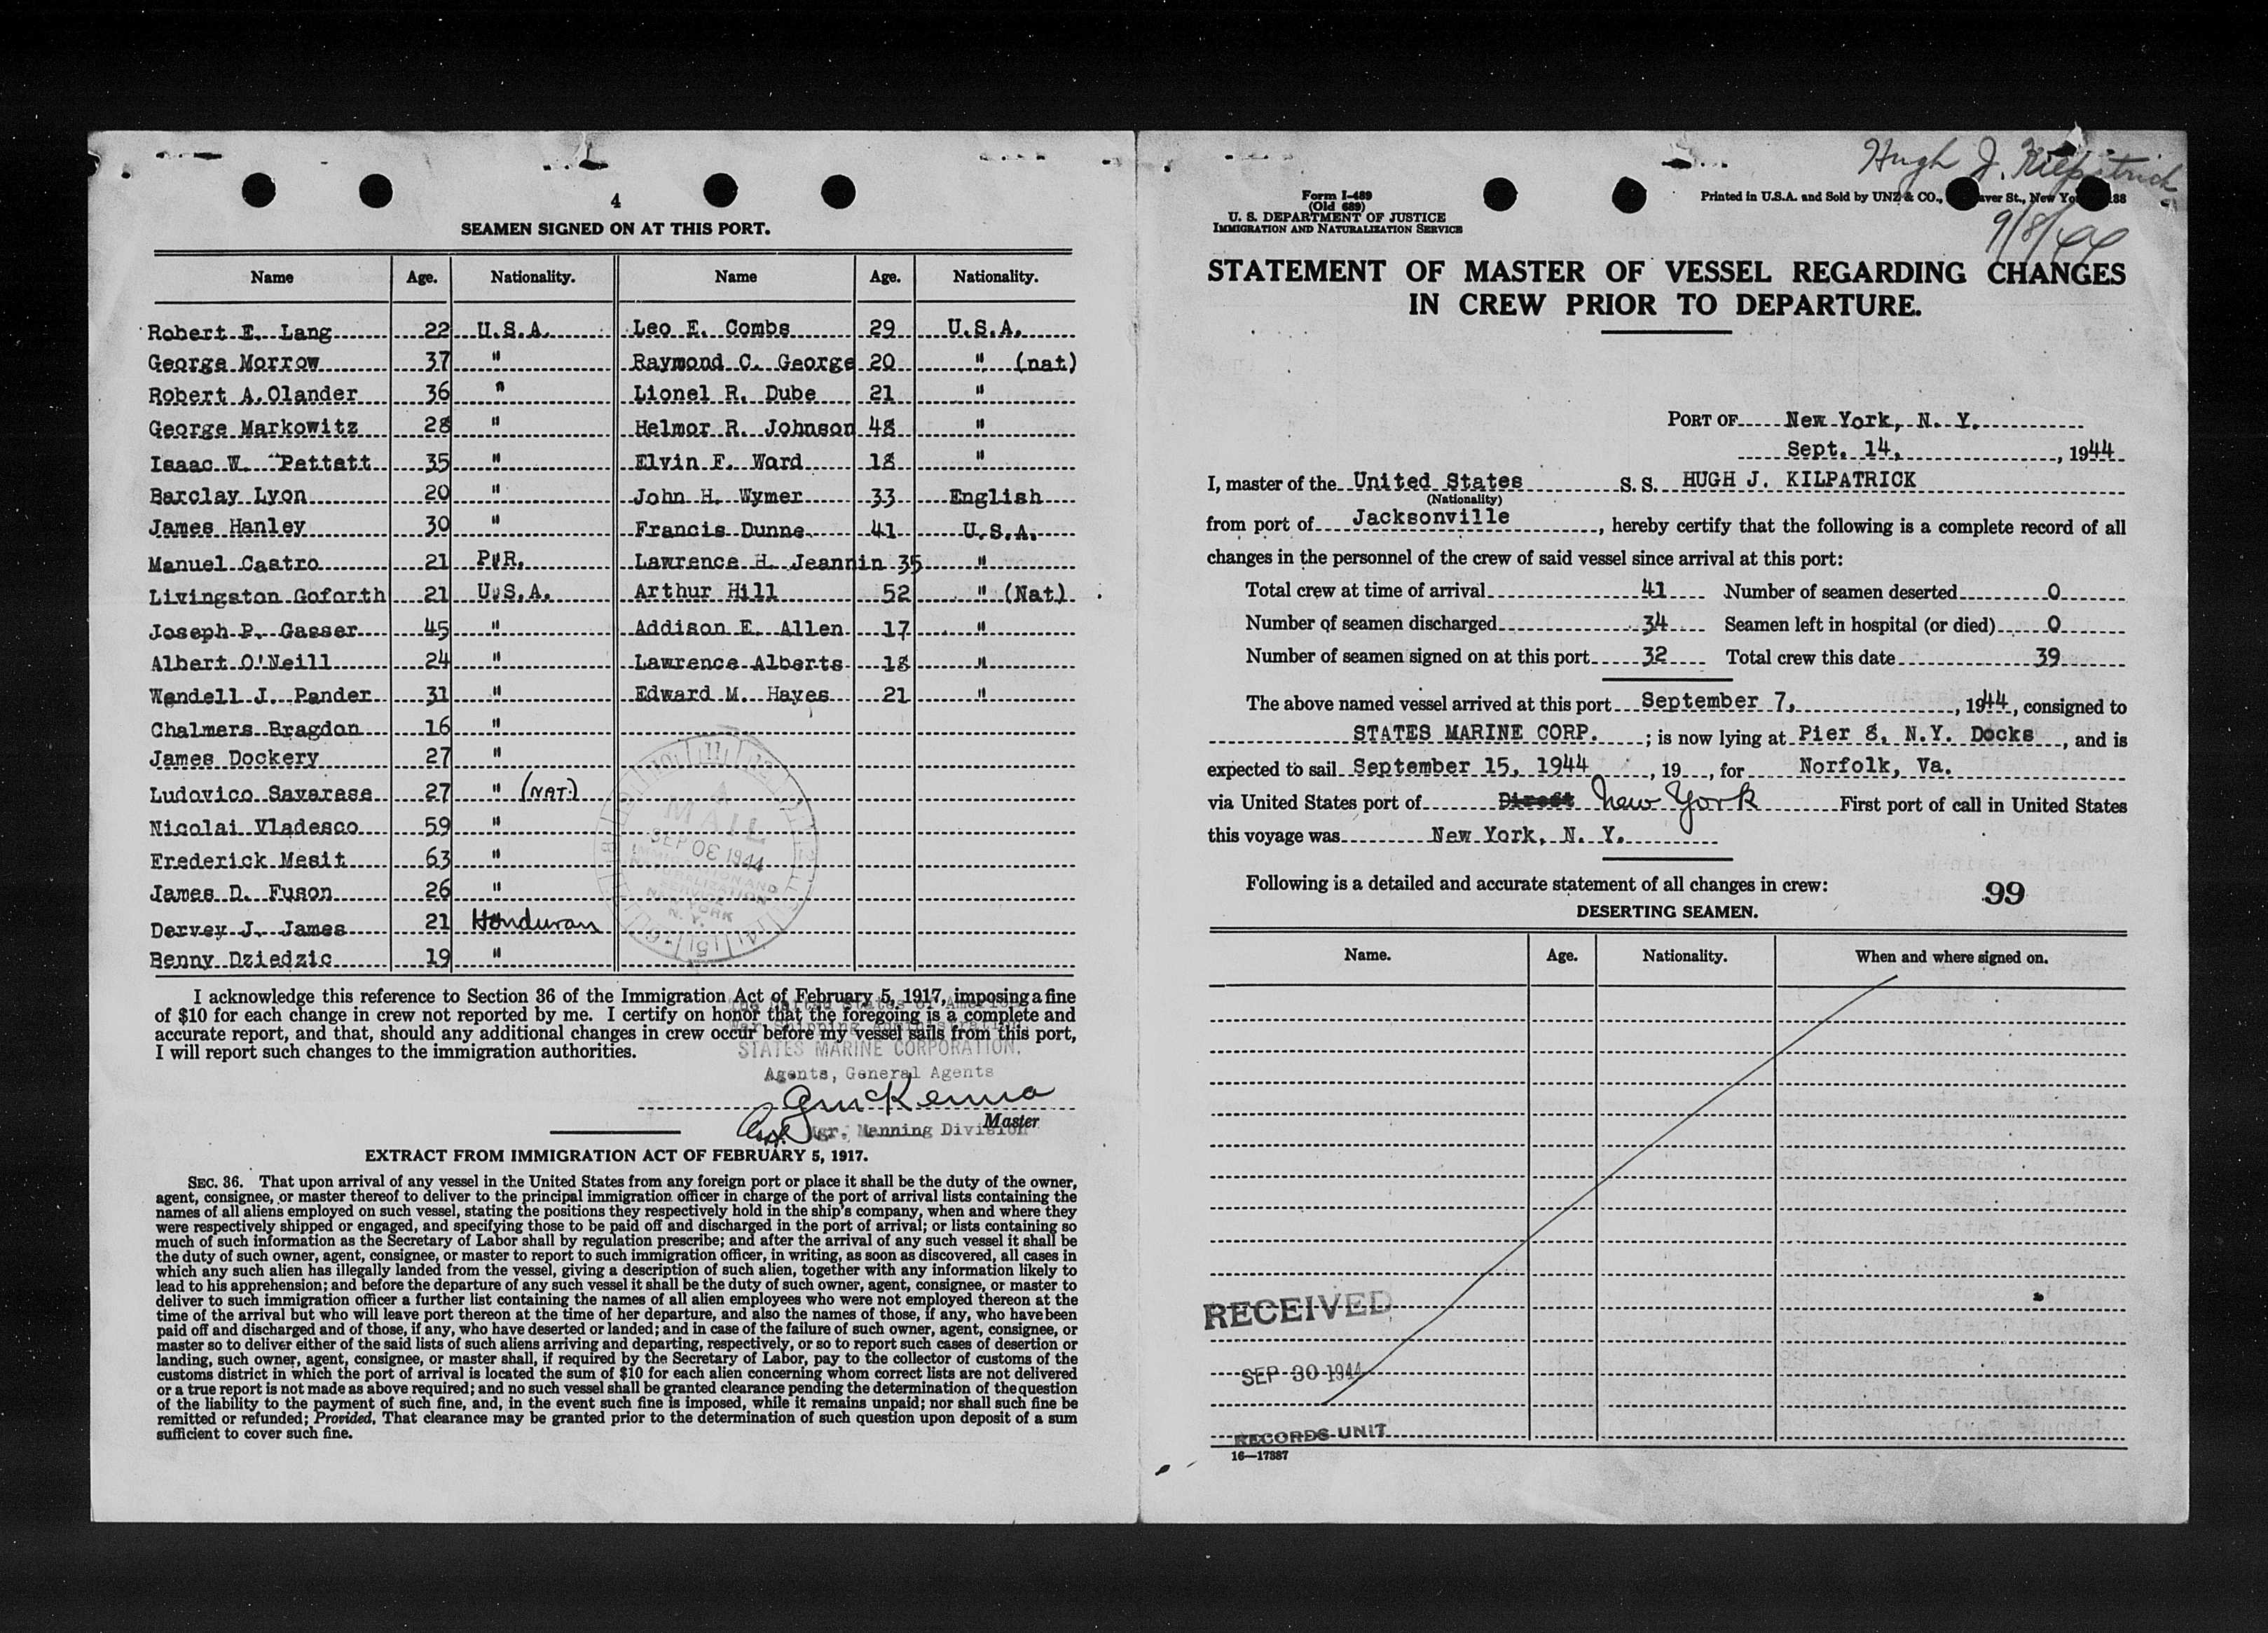 4
SEAMEN SIGNED ON AT THIS PORT.
Name Age. Nationality. Name Age. Nationality.
Robert E. Lang 22 U.S.A. Leo E. Combs 29 U.S.A.
George Morrow 37 " Raymond C. George 20 " (nat)
Robert A.Olander 36 " Lionel R. Dube 21 "
George Markowitz 28 " Helmor R. Johnson 48 "
Isaac W. Pettatt 35 " Elvin F. Ward 18 "
Barclay Lyon 20 " John H. Wymer 33 English
James Hanley 30 " Francis Dunne 41 U.S.A.
Manuel Castro 21 P.R. Lawrence H. Jeannin 35 "
Livingston Goforth 21 U.S.A. Arthur Hill 52 " (Nat)
Joseph P. Gasser 45 " Addison E. Allen 17 "
Albert O'Neill 24 " Lawrence Alberts 18 "
Wendell J. Pander 31 " Edward M. Hayes 21 "
Chalmers Bragdon 16 "
James Dockery 27 "
Ludovico Savarese 27 " (NAT.)
Nicolai Vladesco 59 "
Frederick Mesit 63 "
James D. Fuson 26 "
Dervey J. James 21 Honduran
Benny Dziedzic 19 "
MAIL
SEP 08 1944
IMMIGRATION AND
NATURALIZATION
SERVICE
NEW YORK
N. Y.
I acknowledge this reference to Section 36 of the Immigration Act of February 5, 1917, imposing a fine
of $10 for each change in crew not reported by me. I certify on honor that the foregoing is a complete and
accurate report, and that, should any additional changes in crew occur before my vessel sails from this port,
I will report such changes to the immigration authorities.
The United States of America
War Shipping Administration
STATES MARINE CORPORATION.
Agents, General Agents
Master
Mgr. Manning Division
EXTRACT FROM IMMIGRATION ACT OF FEBRUARY 5, 1917.
SEC. 36. That upon arrival of any vessel in the United States from any foreign port or place it shall be the duty of the owner,
agent, consignee, or master thereof to deliver to the principal immigration officer in charge of the port of arrival lists containing the
names of all aliens employed on such vessel, stating the positions they respectively hold in the ship's company, when and where they
were respectively shipped or engaged, and specifying those to be paid off and discharged in the port of arrival; or lists containing so
much of such information as the Secretary of Labor shall by regulation prescribe; and after the arrival of any such vessel it shall be
the duty of such owner, agent, consignee, or master to report to such immigration officer, in writing, as soon as discovered, all cases in
which any such alien has illegally landed from the vessel, giving a description of such alien, together with any information likely to
lead to his apprehension; and before the departure of any such vessel it shall be the duty of such owner, agent, consignee, or master to
deliver to such immigration officer a further list containing the names of all alien employees who were not employed thereon at the
time of the arrival but who will leave port thereon at the time of her departure, and also the names of those, if any, who have been
paid off and discharged and of those, if any, who have deserted or landed; and in case of the failure of such owner, agent, consignee, or
master so to deliver either of the said lists of such aliens arriving and departing, respectively, or so to report such cases of desertion or
landing, such owner, agent, consignee, or master shall, if required by the Secretary of Labor, pay to the collector of customs of the
customs district in which the port of arrival is located the sum of $10 for each alien concerning whom correct lists are not delivered
or a true report is not made as above required; and no such vessel shall be granted clearance pending the determination of the question
of the liability to the payment of such fine, and, in the event such fine is imposed, while it remains unpaid; nor shall such fine be
remitted or refunded; Provided, That clearance may be granted prior to the determination of such question upon deposit of a sum
sufficient to cover such fine.
Hugh J. Kilpatrick
9/8/44
Form I-489
(Old 689)
U. S. DEPARTMENT OF JUSTICE
IMMIGRATION AND NATURALIZATION SERVICE
Printed in U.S.A. and Sold by UNZ & CO., aver St., New Yo 188
STATEMENT OF MASTER OF VESSEL REGARDING CHANGES
IN CREW PRIOR TO DEPARTURE.
PORT OF New York, N. Y.
Sept. 14, , 1944
I, master of the United States S. S. HUGH J. KILPATRICK
(Nationality)
from port of Jacksonville , hereby certify that the following is a complete record of all
changes in the personnel of the crew of said vessel since arrival at this port:
Total crew at time of arrival 41 Number of seamen deserted 0
Number of seamen discharged 34 Seamen left in hospital (or died) 0
Number of seamen signed on at this port 32 Total crew this date 39
The above named vessel arrived at this port September 7, , 1944, consigned to
STATES MARINE CORP. ; is now lying at Pier 8, N.Y. Docks , and is
expected to sail September 15, 1944 , 19 , for Norfolk, Va.
via United States port of Direct New York First port of call in United States
this voyage was New York, N. Y.
Following is a detailed and accurate statement of all changes in crew: 99
DESERTING SEAMEN.
Name. Age. Nationality. When and where signed on.
RECEIVED
SEP 30 1944
RECORDS UNIT
16—17887